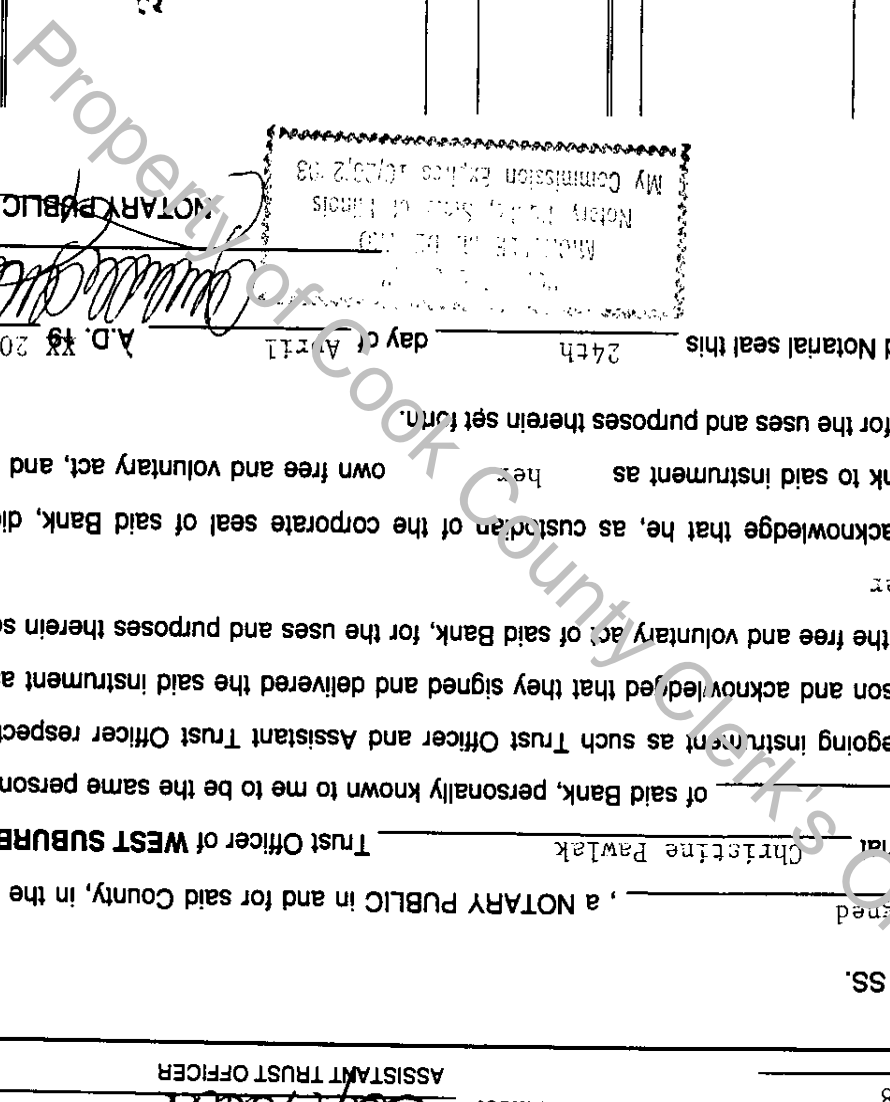 ASSISTANT TRUST OFFICER
SS.
, a NOTARY PUBLIC in and for said County, in the
Christine Pawlak Trust Officer of WEST SUBURB
of said Bank, personally known to me to be the same person
egoing instrument as such Trust Officer and Assistant Trust Officer respect
son and acknowledged that they signed and delivered the said instrument a
the free and voluntary act of said Bank, for the uses and purposes therein s
er
acknowledge that he, as custodian of the corporate seal of said Bank, di
nk to said instrument as her own free and voluntary act, and
for the uses and purposes therein set forth.
d Notarial seal this 24th day of April A.D. 19 20
NOTARY PUBLIC
Notary Public, State of Illinois
My Commission Expires
Property of Cook County Clerk's Of